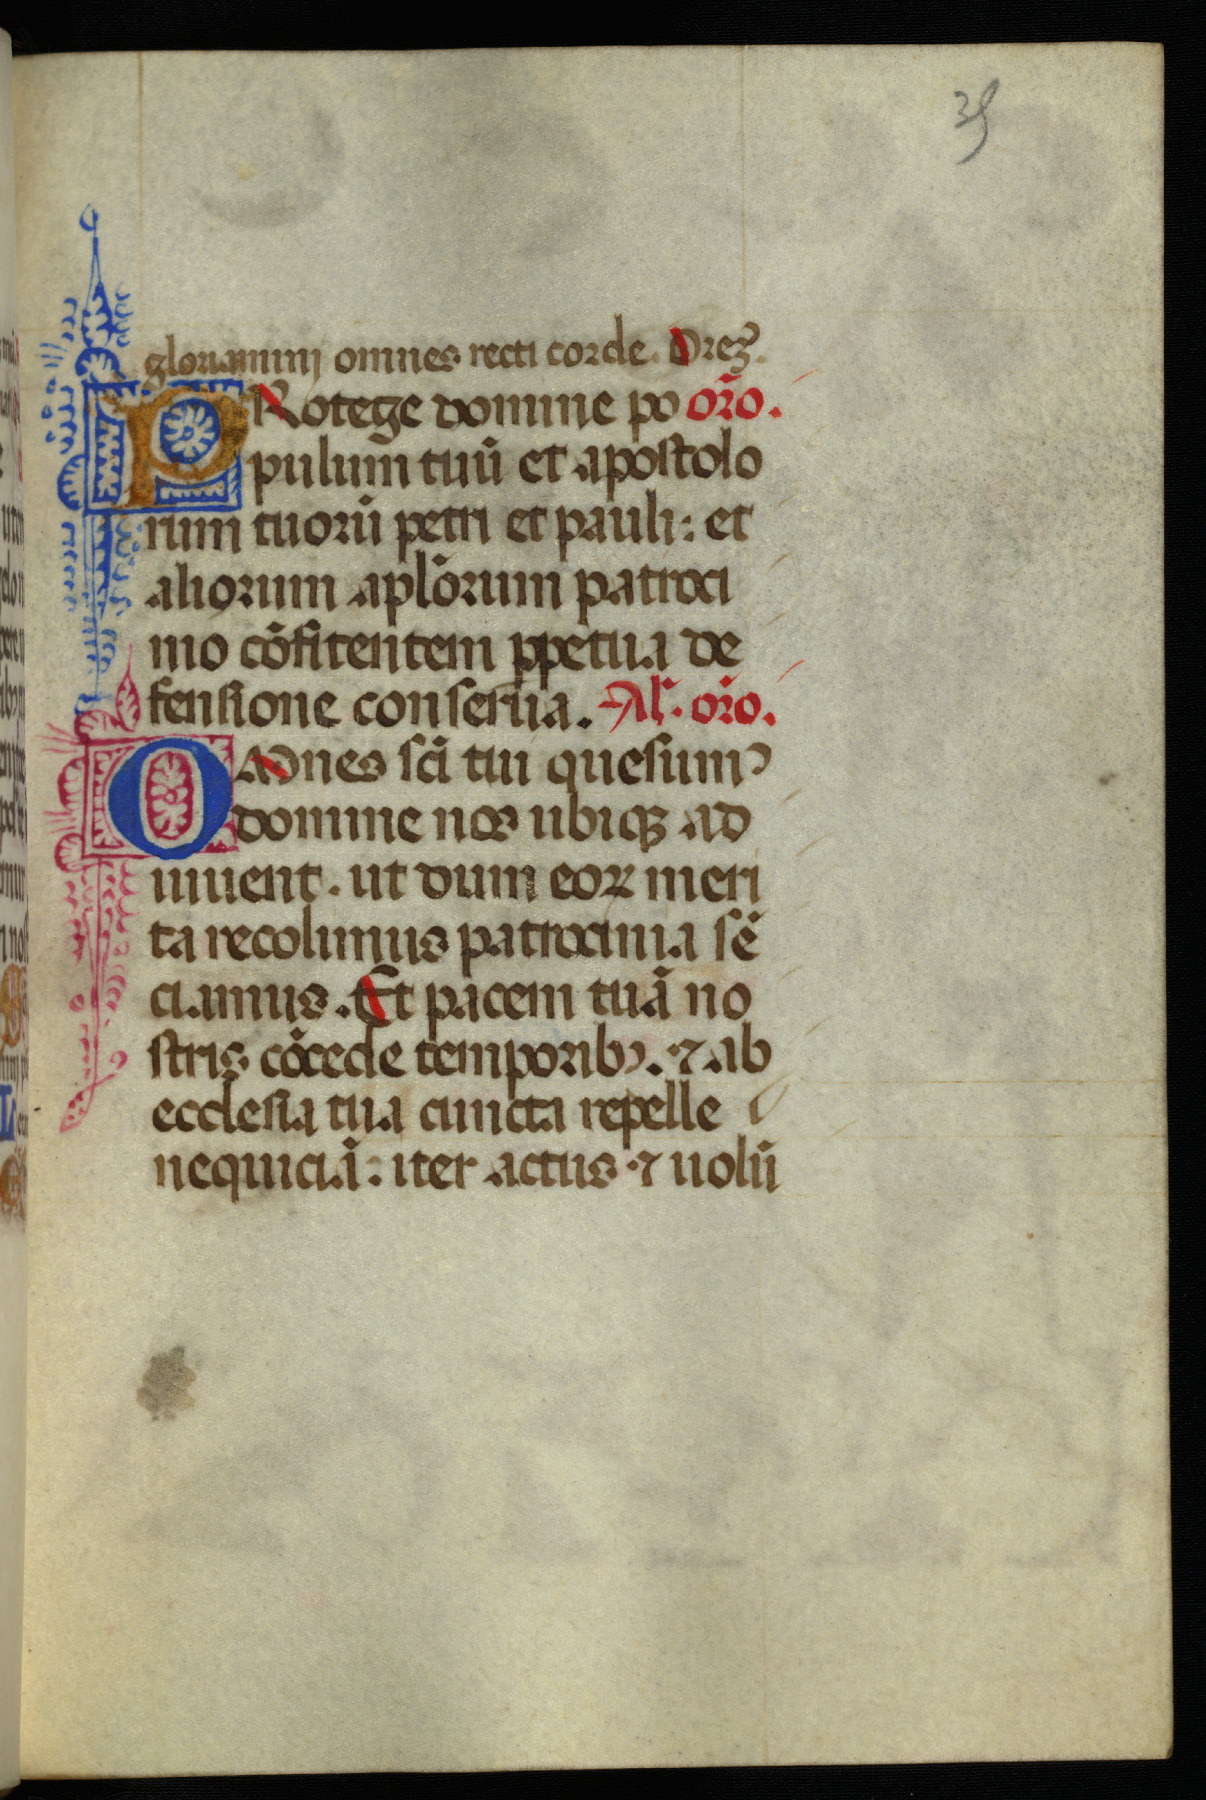 35
gloriamini omnes recti corde. Orem9.
PRotege domine po oro.
pulum tuū et apostolo
rum tuorū petri et pauli: et
aliorum apl̄orum patroci
nio cōfitentem ꝑpetua de
fensione conserua. Al̄. or̄o.
OMnes sc̄i tui quesumꝰ
domine nos ubiqꝫ ad
iuuent. ut dum eoꝝ meri
ta recolimus patrocinia sē
ciamus. Et pacem tuā no
stris cōcede temporibꝫ. ⁊ ab
ecclesia tua cuncta repelle
nequiciā: iter actus ⁊ uolū